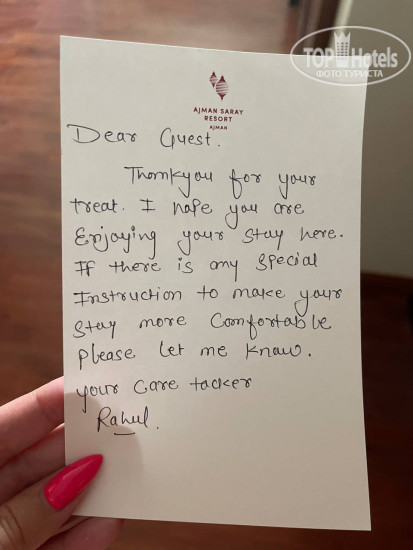 TOP Hotels
ФОТО ТУРИСТА
AJMAN SARAY
RESORT
AJMAN
Dear Guest.
Thankyou for your
treat. I hope you are
Enjoying your stay here.
If there is any special
Instruction to make your
stay more comfortable
please let me know.
your care tacker
Rahul.